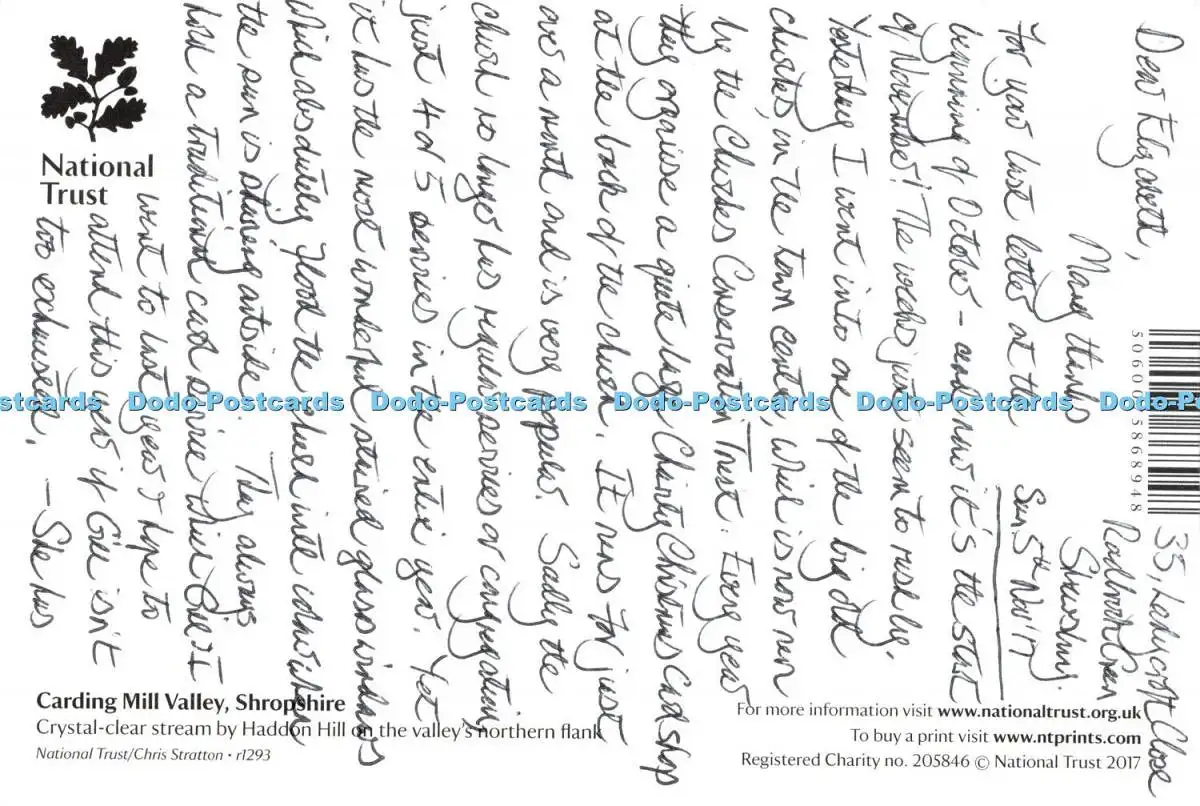 National
Trust
33, Ladycroft Close
Radbrook Green
Shrewsbury.
Sun 5th Nov '17
Dear Elizabeth,
Many thanks
for your last letter at the
beginning of October – and now it's the start
of November! The weeks just seem to rush by.
Yesterday I went into one of the big old
churches, in the town centre, which is now run
by the Churches Conservation Trust. Every year
they organise a quite large Charity Christmas Card shop
at the back of the church. It runs for just
over a month and is very popular. Sadly the
church no longer has regular services or congregation,
just 4 or 5 services in the entire year. Yet
it has the most wonderful stained glass windows
which absolutely flood the church with colour when
the sun is shining outside. They always
hold a traditional carol service which Gill & I
went to last year & hope to
attend this year if Gill isn't
too exhausted. – She has
Carding Mill Valley, Shropshire
Crystal-clear stream by Haddon Hill on the valley's northern flank
National Trust/Chris Stratton • r1293
For more information visit www.nationaltrust.org.uk
To buy a print visit www.ntprints.com
Registered Charity no. 205846 © National Trust 2017
Dodo-Postcards Dodo-Postcards Dodo-Postcards Dodo-Postcards